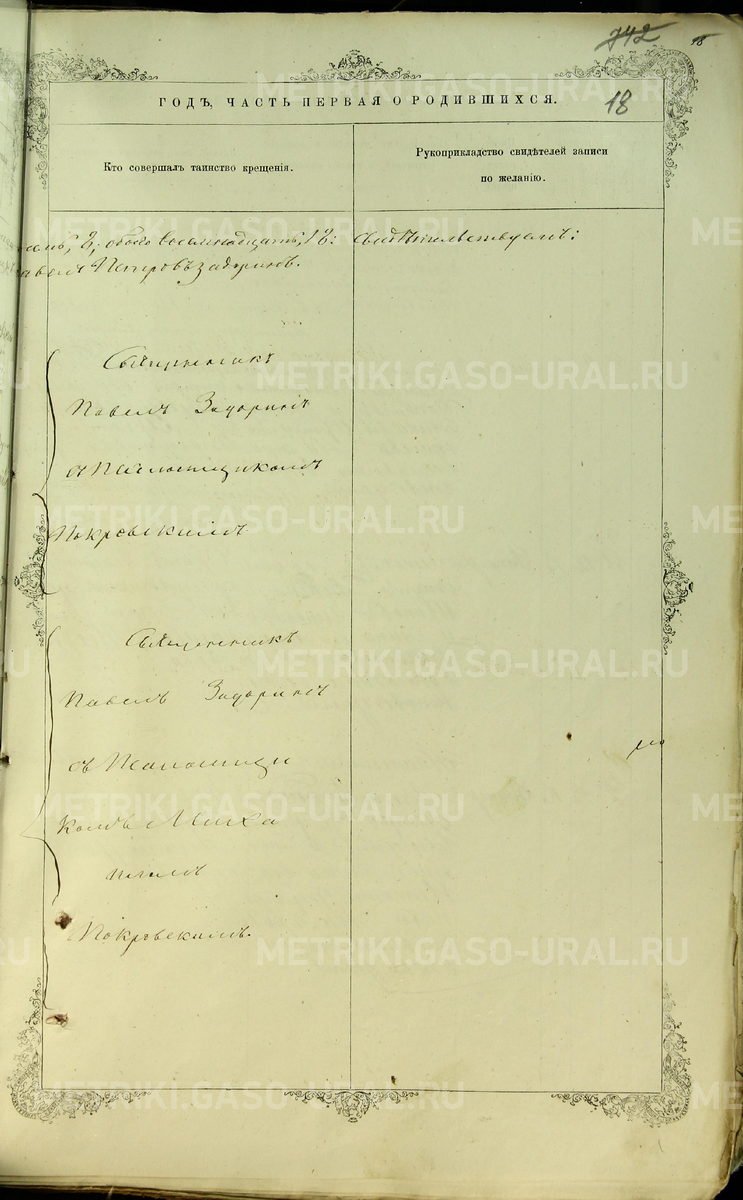 742
18
18
ГОДЪ, ЧАСТЬ ПЕРВАЯ О РОДИВШИХСЯ.
Кто совершалъ таинство крещенія.
Рукоприкладство свидѣтелей записи
по желанію.
обоего восемнадцать, 18: свидѣтельствуемъ:
Петровъ Задоринъ.
Священникъ
Павелъ Задоринъ
съ Псаломщикомъ
Покровскимъ
Священникъ
Павелъ Задоринъ
съ Псаломщи
комъ Миха
иломъ
Покровскимъ.
METRIKI.GASO-URAL.RU